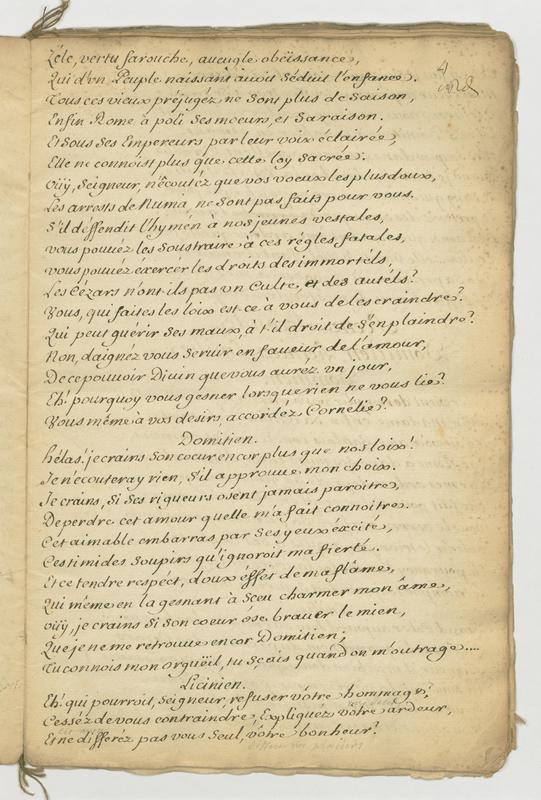 Zéle, vertu farouche, aveugle obeïssance,
Qui d'vn Peuple naissant avoit séduit l'enfance.
4
Tous ces vieux préjugéz ne sont plus de saison,
Enfin Rome à poli ses mœurs, et sa raison.
Et sous ses Empereurs par leur voix éclairée,
Elle ne connoist plus que cette loy sacrée.
oüy, seigneur, n'écoutéz que vos voeux les plus doux,
Les arrests de Numa, ne sont pas faits pour vous.
S'il deffendit l'hymén à nos jeunes vestales,
vous pouvéz les soustraire à ces régles fatales,
vous pouvéz éxercér les droits des immortéls,
Les Cézars n'ont-ils pas vn Culte, et des autéls?
Vous, qui faites les loix est-ce à vous de les craindre?
Qui peut guérir ses maux, à t'il droit de s'en plaindre?
Non, daignéz vous servir en faveur de l'amour,
De ce pouvoir Divin que vous auréz vn jour,
Eh! pourquoy vous gesner lorsque rien ne vous lie?
Vous même à vos desirs accordéz Cornélie?
Domitien.
hélas! je crains son coeur encor plus que nos loix!
Je n'écouteray rien, s'il approuve mon choix.
Je crains, si ses rigueurs osent jamais paroitre,
De perdre cet amour quelle m'a fait connoitre.
Cet aimable embarras par ses yeux éxcité,
Ces timides soupirs qu'ignoroit ma fierté.
Et ce tendre respéct, doux éffét de ma flâme,
Qui même en la gesnant à sceu charmer mon âme,
oüy, je crains si son coeur ose braver le mien,
Que je ne me retrouve encor Domitien;
Tu connois mon orgüeil, tu sçais quand on m'outrage....
Licinien.
Eh! qui pourroit, seigneur, refuser vôtre hommage?
Cesséz de vous contraindre, Expliquéz vôtre ardeur,
Et ne différéz pas vous seul, vôtre bonheur?